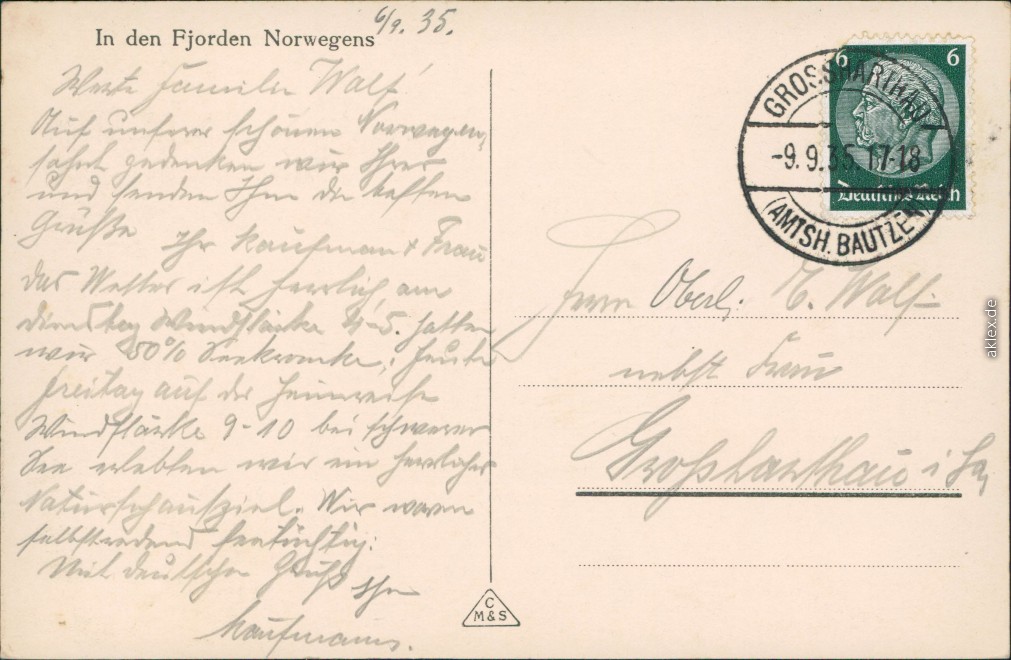 In den Fjorden Norwegens
6/9. 35.
Werte Familie Walf
Auf unserer schönen Norwegen,
fahrt gedenken wir Ihrer
und senden Ihn die besten
Grüße Ihr Kaufman & Frau
das Wetter ist herrlich, am
dienstag Windstärke 4-5. hatten
wir 50% Seekranke, heute
freitag auf der Heimreise
Windstärke 9-10 bei schwerer
See erlebten wir ein herrliches
Naturschauspiel. Wir waren
selbstredend seetüchtig.
Mit deutschen Gruß Ihr
Kaufmann.
6 6
Deutsches Reich
GROSSHARTHAU
-9.9.35.17-18
(AMTSH. BAUTZEN)
Herrn Oberl. M. Walf
nebst Frau
Großharthau i Sa,
C
M&S
aklex.de